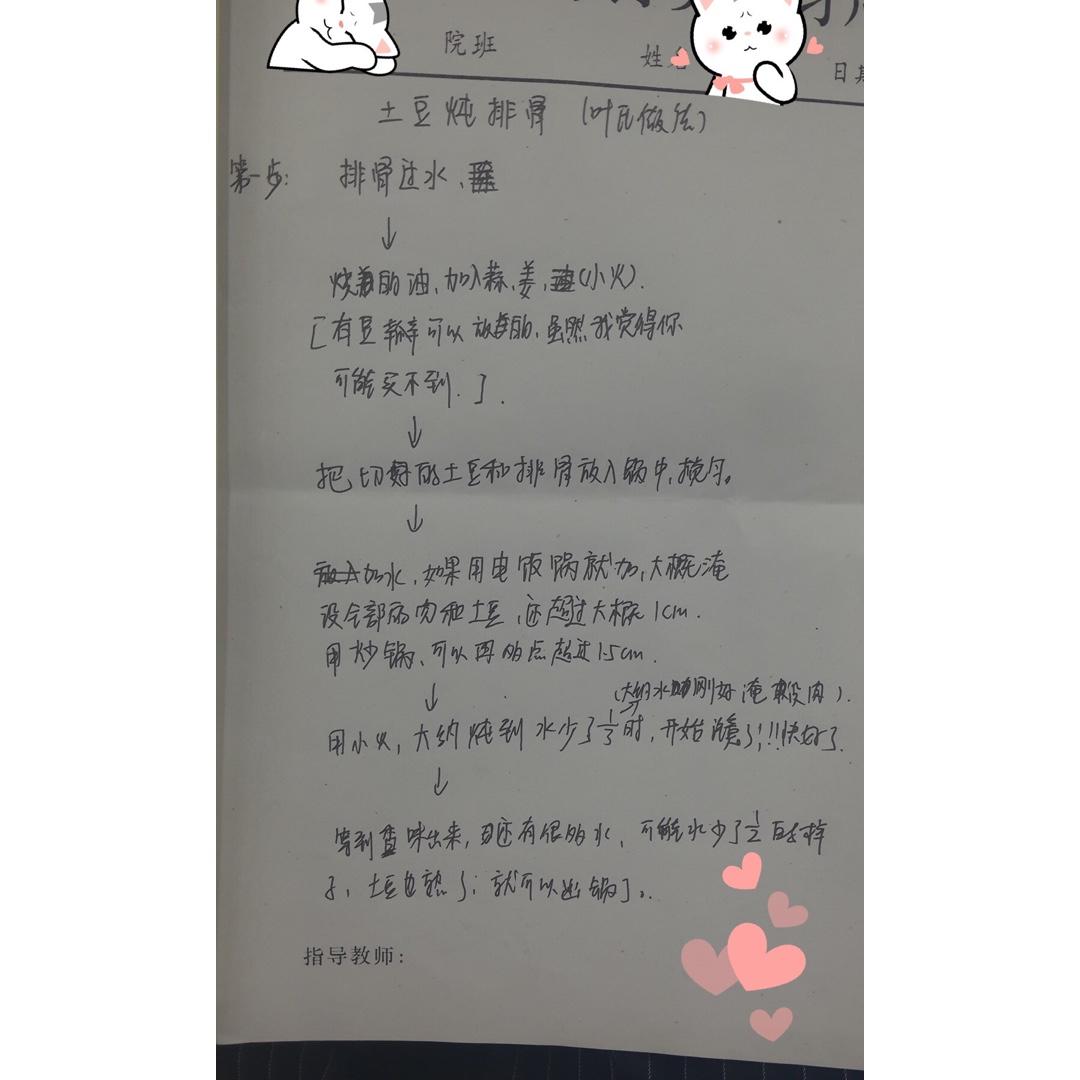 院班
姓名
日期
土豆炖排骨（叶氏做法）
第一步： 排骨过水、
↓
烧着的油、加入蒜、姜、（小火）.
［有豆瓣可以放的、虽然我觉得你
可能买不到.］.
↓
把切好的土豆和排骨放入锅中，搅匀。
↓
加水，如果用电饭锅就加，大概淹
没全部的肉和土豆，还超过大概1cm.
用炒锅、可以再多点超过1.5cm.
↓
（大约水刚好淹没肉）.
用小火，大约炖到水少了1/3时，开始注意了！！！快好了.
↓
等到香味出来，还有很多水，可能水少了1/2的样
子，土豆也熟了；就可以出锅了。
指导教师：